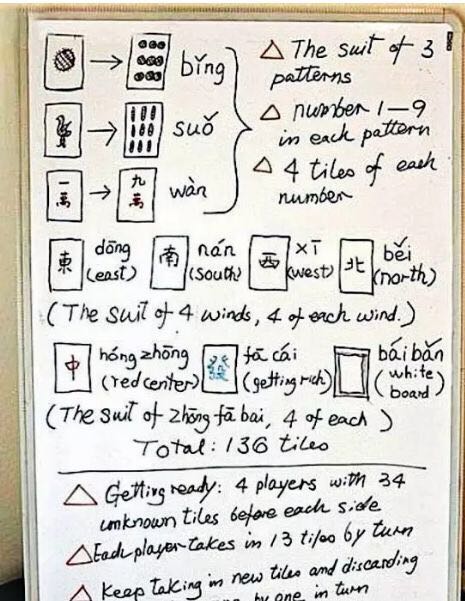 bǐng
suǒ
一萬 九萬 wàn
△ The suit of 3
patterns
△ number 1—9
in each pattern
△ 4 tiles of each
number
東 dōng 南 nán 西 xī 北 běi
(east) (south) (west) (north)
(The suit of 4 winds, 4 of each wind.)
中 hóng zhōng 發 fā cái bái bǎn
(red center) (getting rich) (white
board)
(The suit of zhōng fā bai, 4 of each)
Total: 136 tiles
△ Getting ready: 4 players with 34
unknown tiles before each side
△ Each player takes in 13 tiles by turn
△ Keep taking in new tiles and discarding
one by one in turn